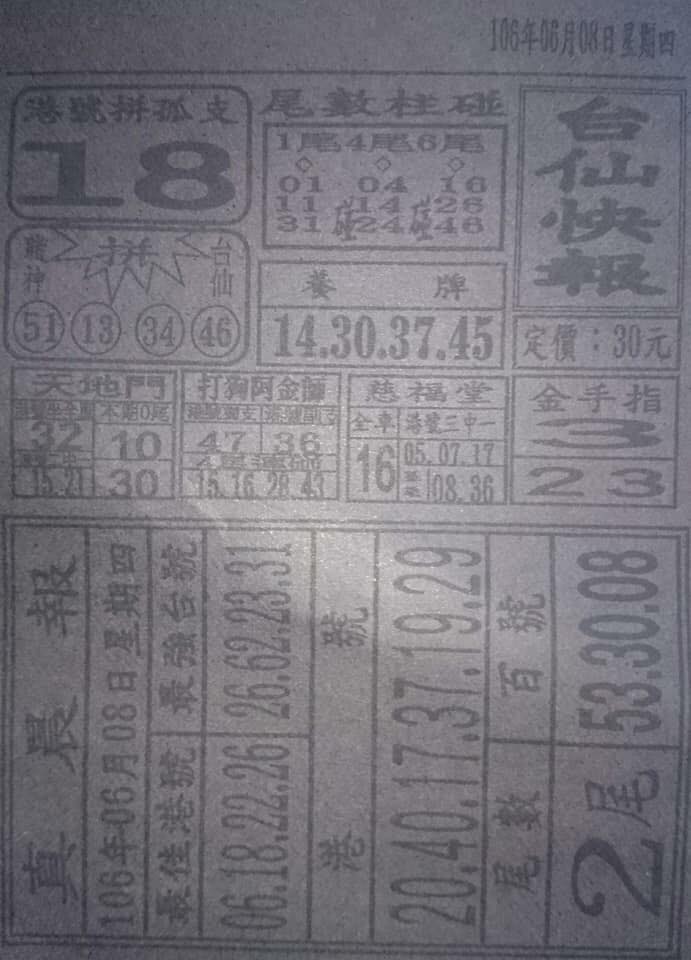 106年06月08日星期四
台仙快報
定價：30元
港號拼孤支
18
尾數柱碰
1尾4尾6尾
01 04 16
11碰14碰26
31 24 46
龍神 拼 台仙
51 13 34 46
養牌
14.30.37.45
天地門
本期0尾
32 10
15.21 30
打狗阿金師
港號獨支
47 36
15.16.28.43
慈福堂
全車 港號三中一
16 05.07.17
08.36
金手指
3
23
真晨報
106年06月08日星期四
最佳港號 最強台號
06.18.22.26 26.62.23.31
港號
20.40.17.37.19.29
尾數 百號
2尾 53.30.08